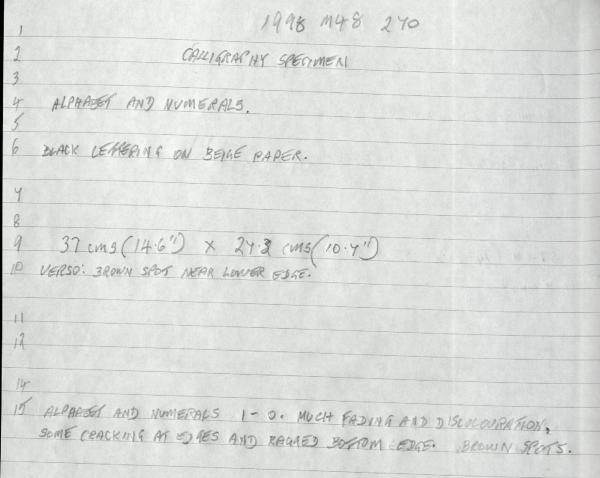 1998 M48 270
1
2 CALLIGRAPHY SPECIMEN
3
4 ALPHABET AND NUMERALS.
5
6 BLACK LETTERING ON BEIGE PAPER.
7
8
9 37 cms (14.6") x 27.3 cms (10.7")
10 VERSO: BROWN SPOT NEAR LOWER EDGE.
11
12
14
15 ALPHABET AND NUMERALS 1-0. MUCH FADING AND DISCOLOURATION,
SOME CRACKING AT EDGES AND RAGGED BOTTOM EDGE. BROWN SPOTS.